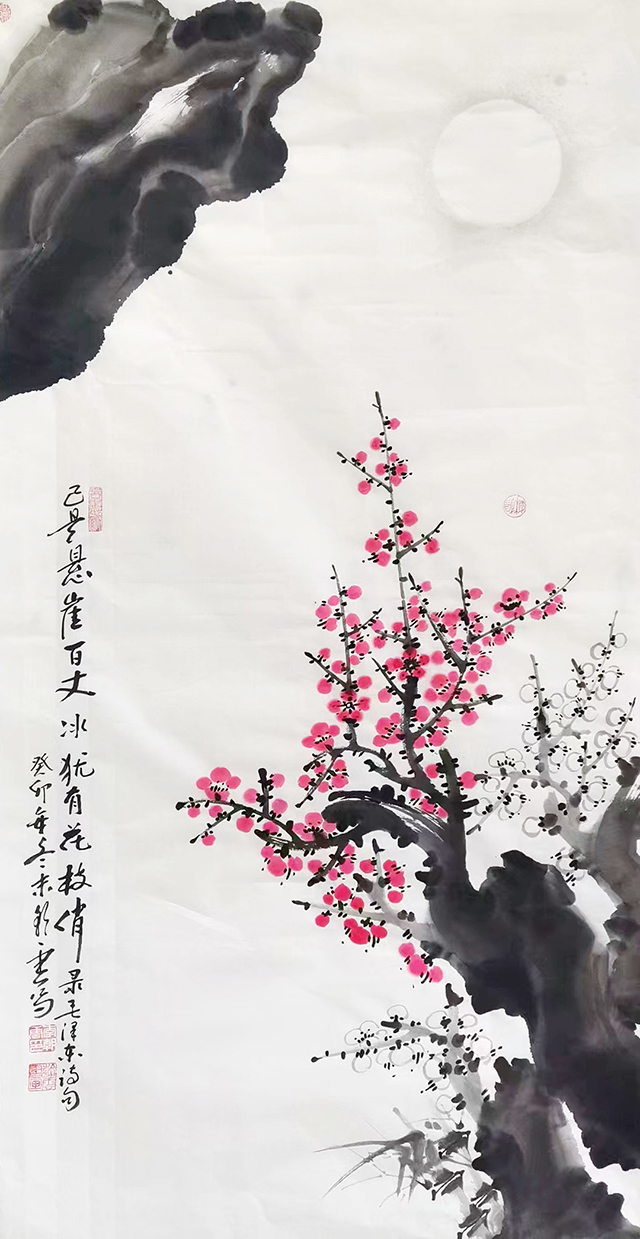 已是悬崖百丈冰犹有花枝俏 录毛泽东诗句
癸卯年冬末写